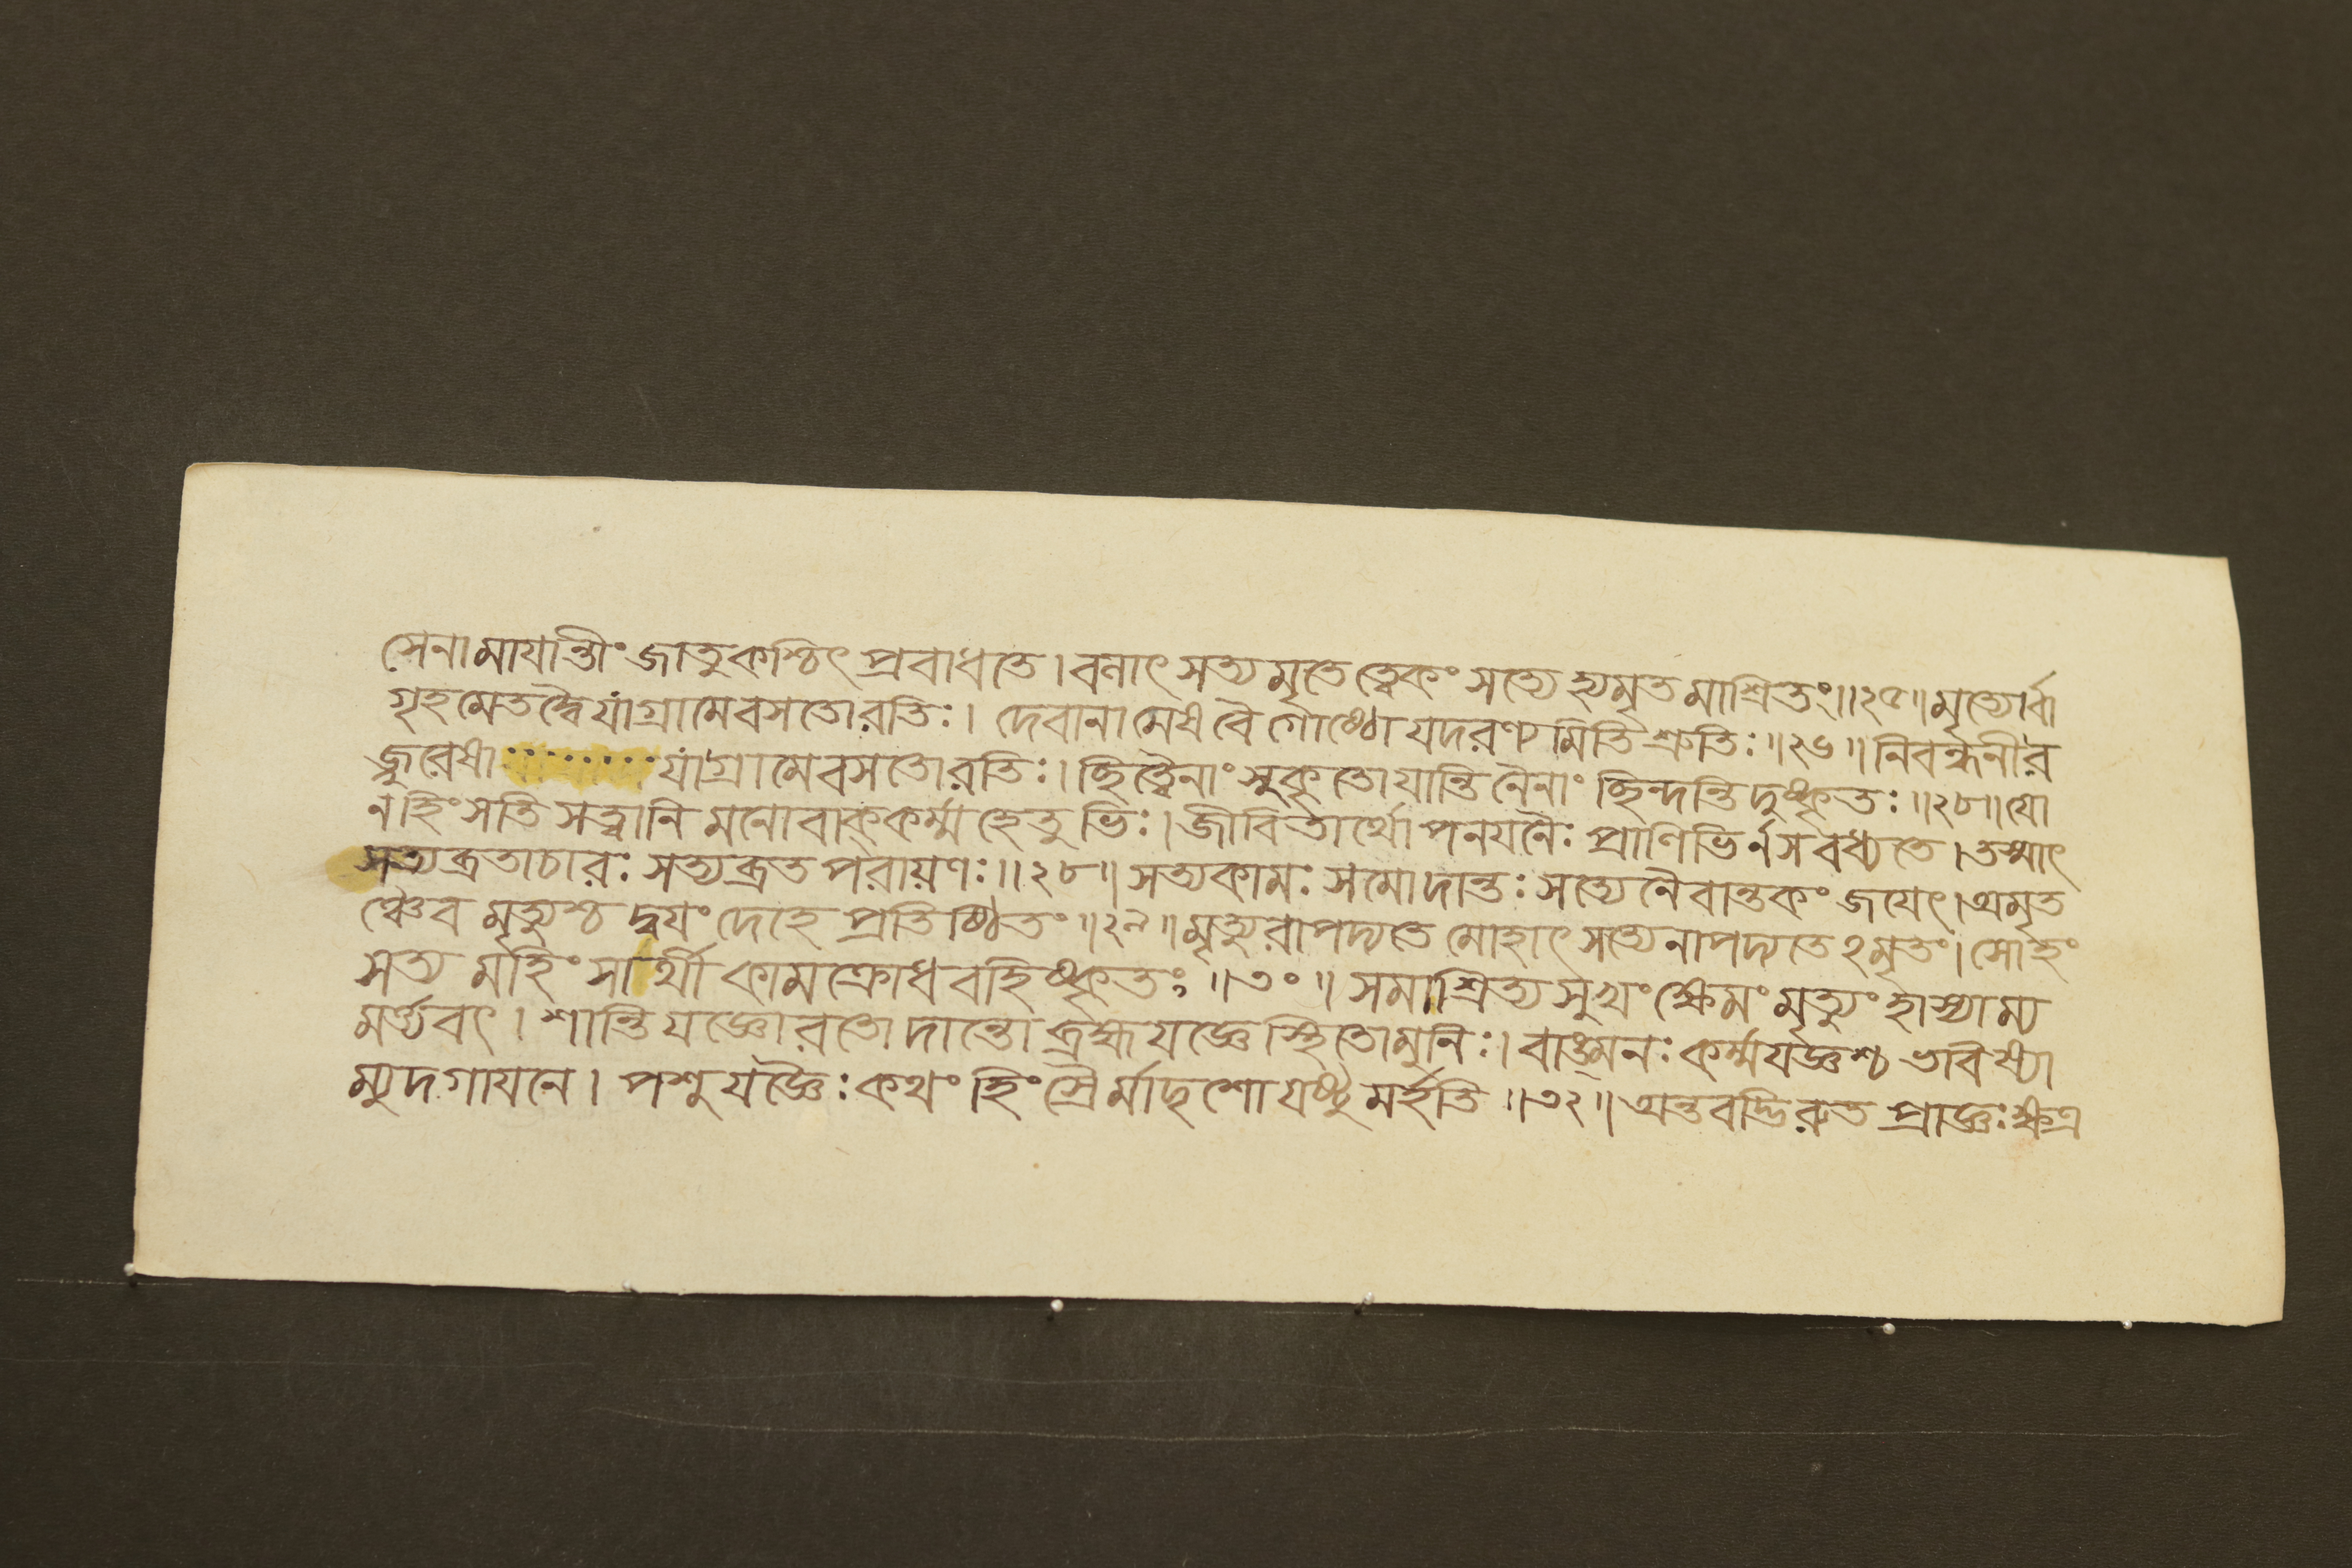 সেনামাযান্তীং জাতু কশ্চিৎ প্রবাধতে। বনাৎ সত্যমৃতে ত্বেকং সত্যে হ্যমৃতমাশ্রিতং॥২৫॥ মৃত্যোর্বা
গৃহমেতদ্বৈ যা গ্রামে বসতো রতিঃ। দেবানামেষ বৈ গোষ্ঠো যদরণ্যমিতি শ্রুতিঃ॥২৬॥ নিবন্ধনী র
জ্জুরেষা যা গ্রামে বসতো রতিঃ। ছিত্বৈনাং সুকৃতো যান্তি নৈনাং ছিন্দন্তি দুষ্কৃতঃ॥২৮॥ যো
ন হিংসতি সত্ত্বানি মনোবাক্কর্ম্মহেতুভিঃ। জীবিতার্থোপনযনৈঃ প্রাণিভির্ন স বধ্যতে। তস্মাৎ
সত্যব্রতাচারঃ সত্যব্রতপরায়ণঃ॥২৮॥ সত্যকামঃ সমো দান্তঃ সত্যেনৈবান্তকং জযেৎ। অমৃত
ঞ্চৈব মৃত্যুশ্চ দ্বযং দেহে প্রতিষ্ঠিতং॥২৯॥ মৃত্যুরাপদ্যতে মোহাৎ সত্যেনাপদ্যতেঽমৃতং। সোহং
সত্যমহিংসার্থী কামক্রোধবহিষ্কৃতঃ॥৩০॥ সমাশ্রিত্য সুখং ক্ষেমং মৃত্যুং হাস্যাম্য
মর্ত্যবৎ। শান্তিযজ্ঞো রতো দান্তো ব্রহ্মযজ্ঞে স্থিতো মুনিঃ। বাঙ্মনঃ কর্ম্মযজ্ঞশ্চ ভবিষ্যা
ম্যুদগাযনে। পশুযজ্ঞৈঃ কথং হিংস্রৈর্মাদৃশো যষ্টুমর্হতি॥৩২॥ অন্তবদ্ভিরুত প্রাজ্ঞঃ ক্ষত্র